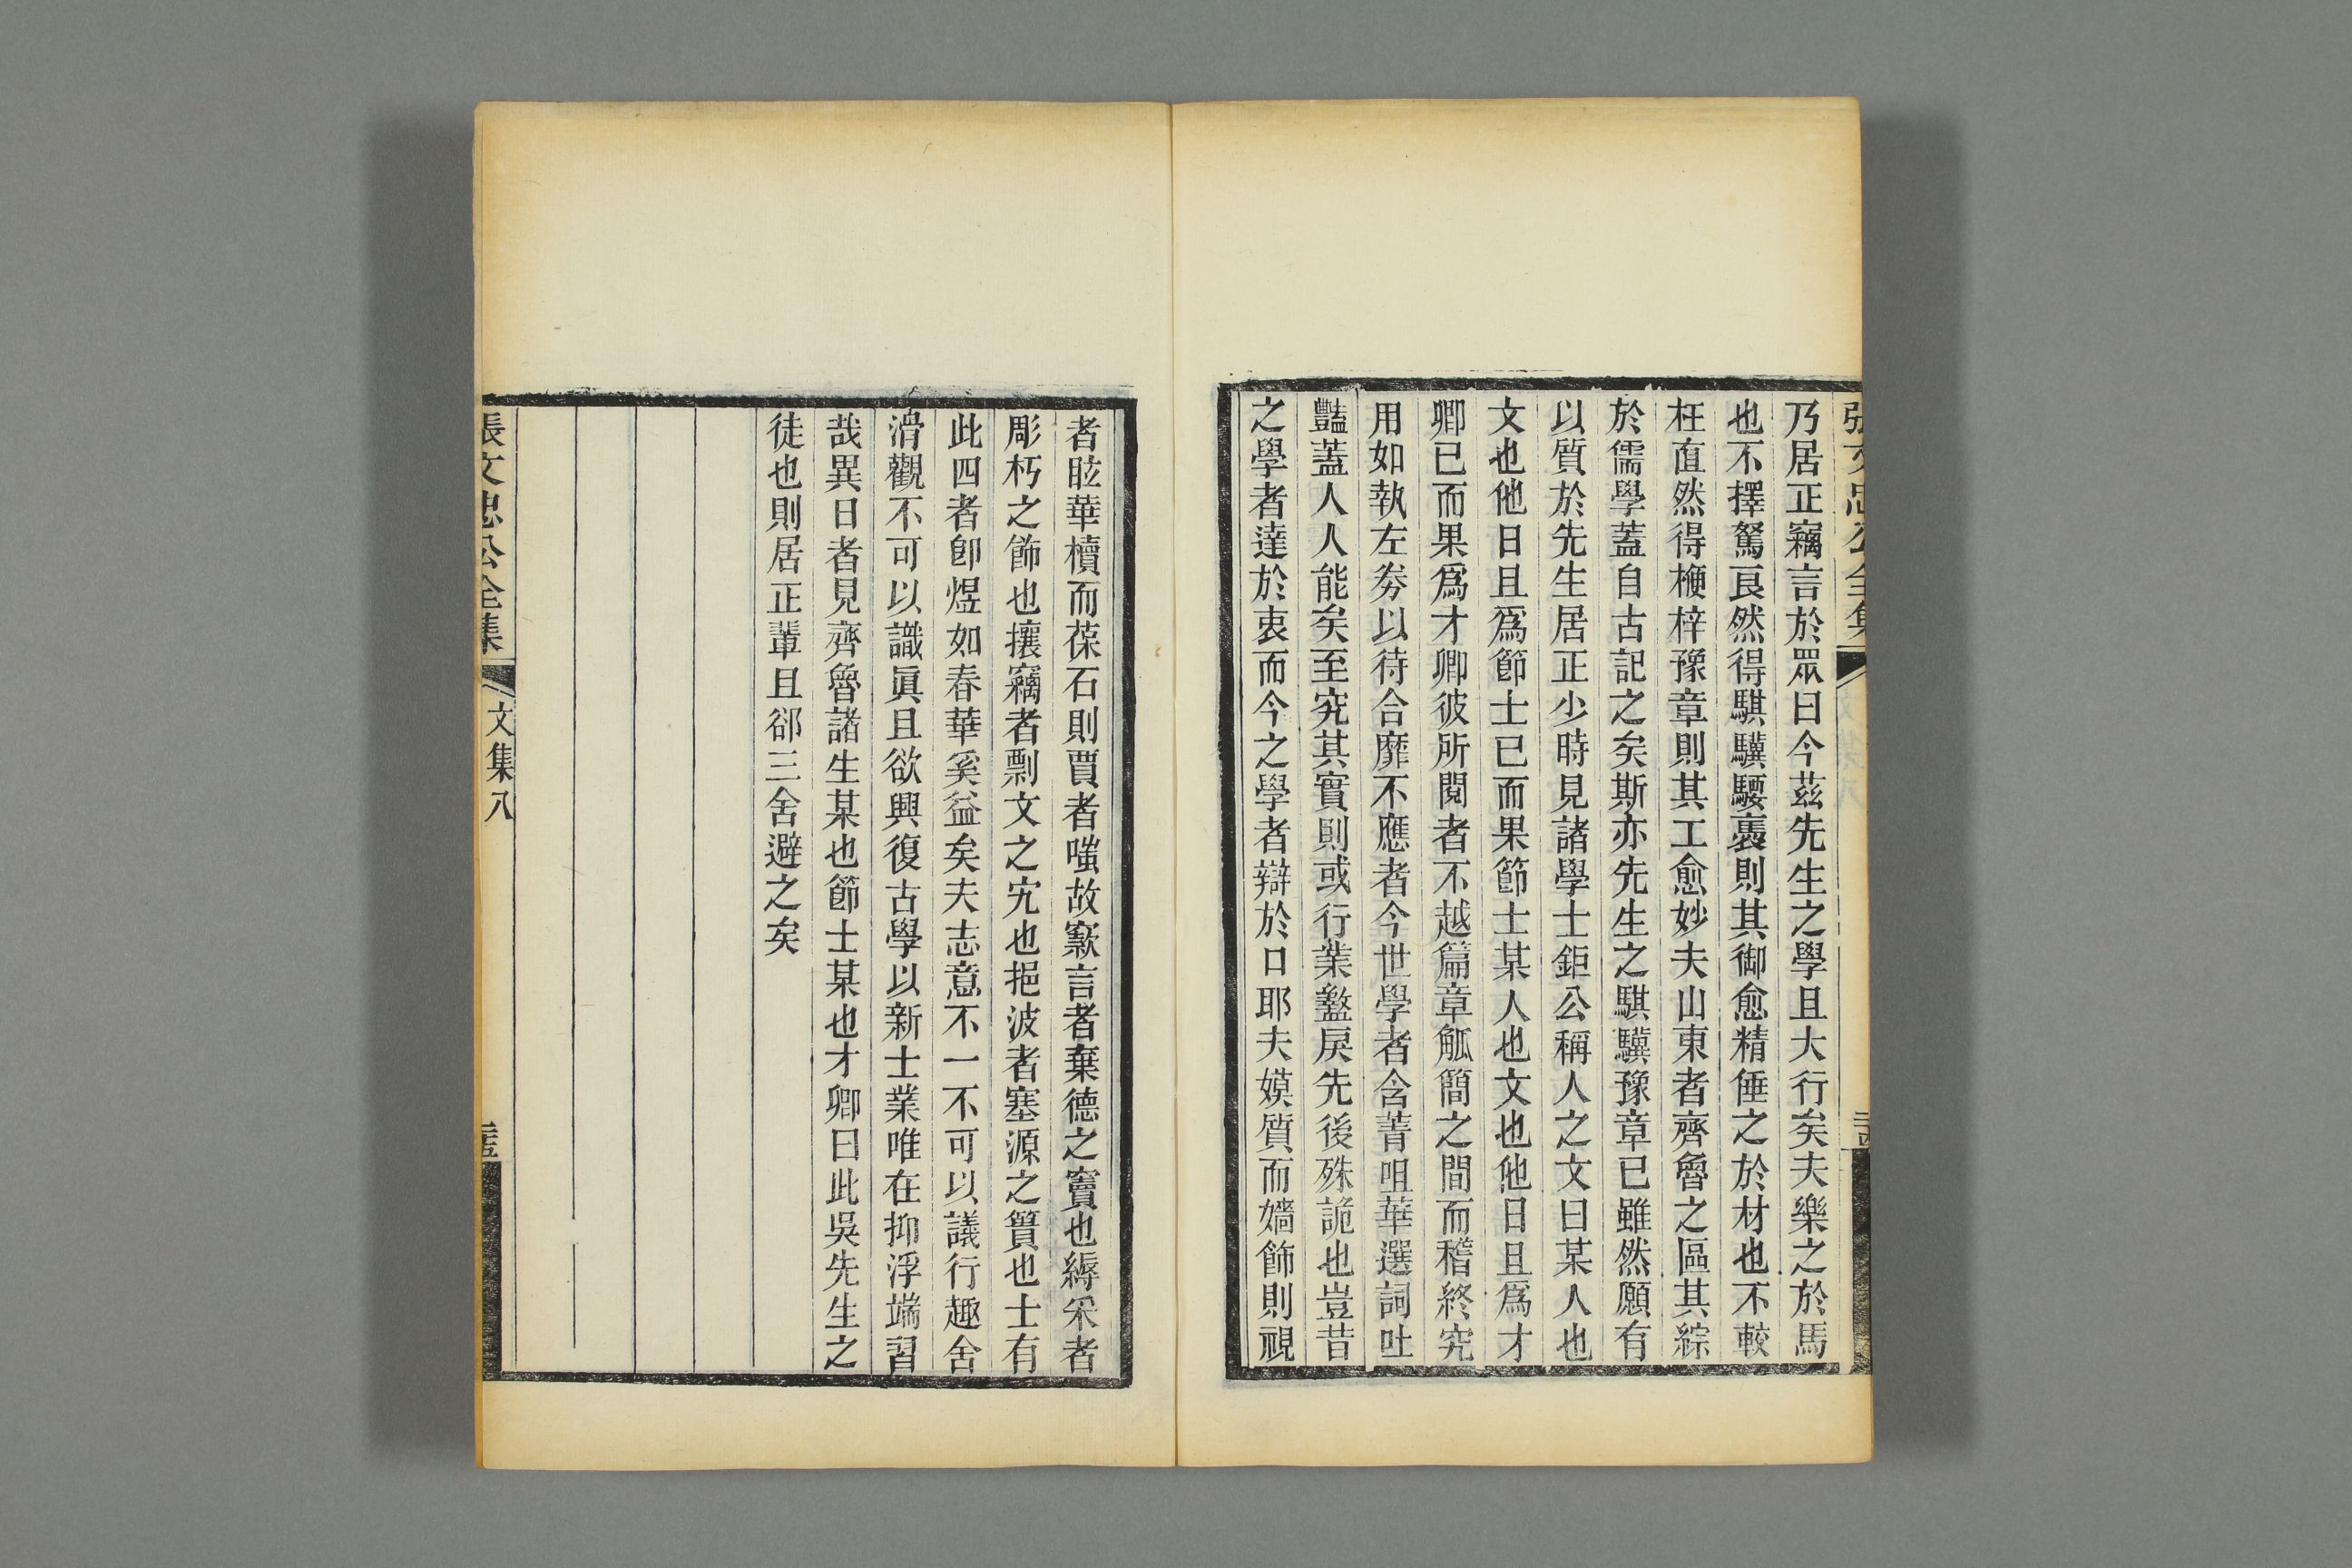 張文忠公全集
二十四
乃居正竊言於眾曰今茲先生之學且大行矣夫樂之於馬
也不擇駑良然得騏驥騕褭則其御愈精倕之於材也不較
枉直然得楩梓豫章則其工愈妙夫山東者齊魯之區其綜
於儒學蓋自古記之矣斯亦先生之騏驥豫章已雖然願有
以質於先生居正少時見諸學士鉅公稱人之文曰某人也
文也他日且爲節士已而果節士某人也文也他日且爲才
卿已而果爲才卿彼所閱者不越篇章觚簡之間而稽終究
用如執左劵以待合靡不應者今世學者含菁咀華選詞吐
豔蓋人人能矣至究其實則或行業盭戾先後殊詭也豈昔
之學者達於衷而今之學者辯於口耶夫嫫質而嬙飾則視
者眩華櫝而葆石則賈者嗤故窾言者棄德之竇也縟采者
彫朽之飾也攘竊者剽文之宄也挹波者塞源之簣也士有
此四者卽煜如春華奚益矣夫志意不一不可以議行趣舍
滑觀不可以識眞且欲興復古學以新士業唯在抑浮端習
哉異日者見齊魯諸生某也節士某也才卿曰此吳先生之
徒也則居正輩且郤三舍避之矣
張文忠公全集
文集八